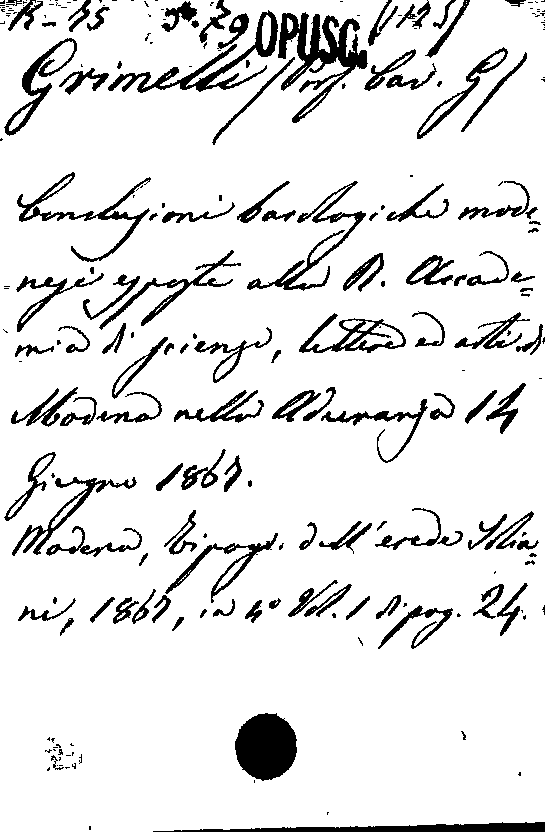 R-75 OPUSC. (125)
Grimelli (Prof. Cav. G)
Conclusioni bacologiche mode=
nesi esposte alla R. Accade=
mia di scienze, lettere ed arti di
Modena nella Adunanza 14
Giugno 1867.
Modena, Tipogr. dell'erede Solia=
ni, 1867, in 4º Vol. 1 di pag. 24.